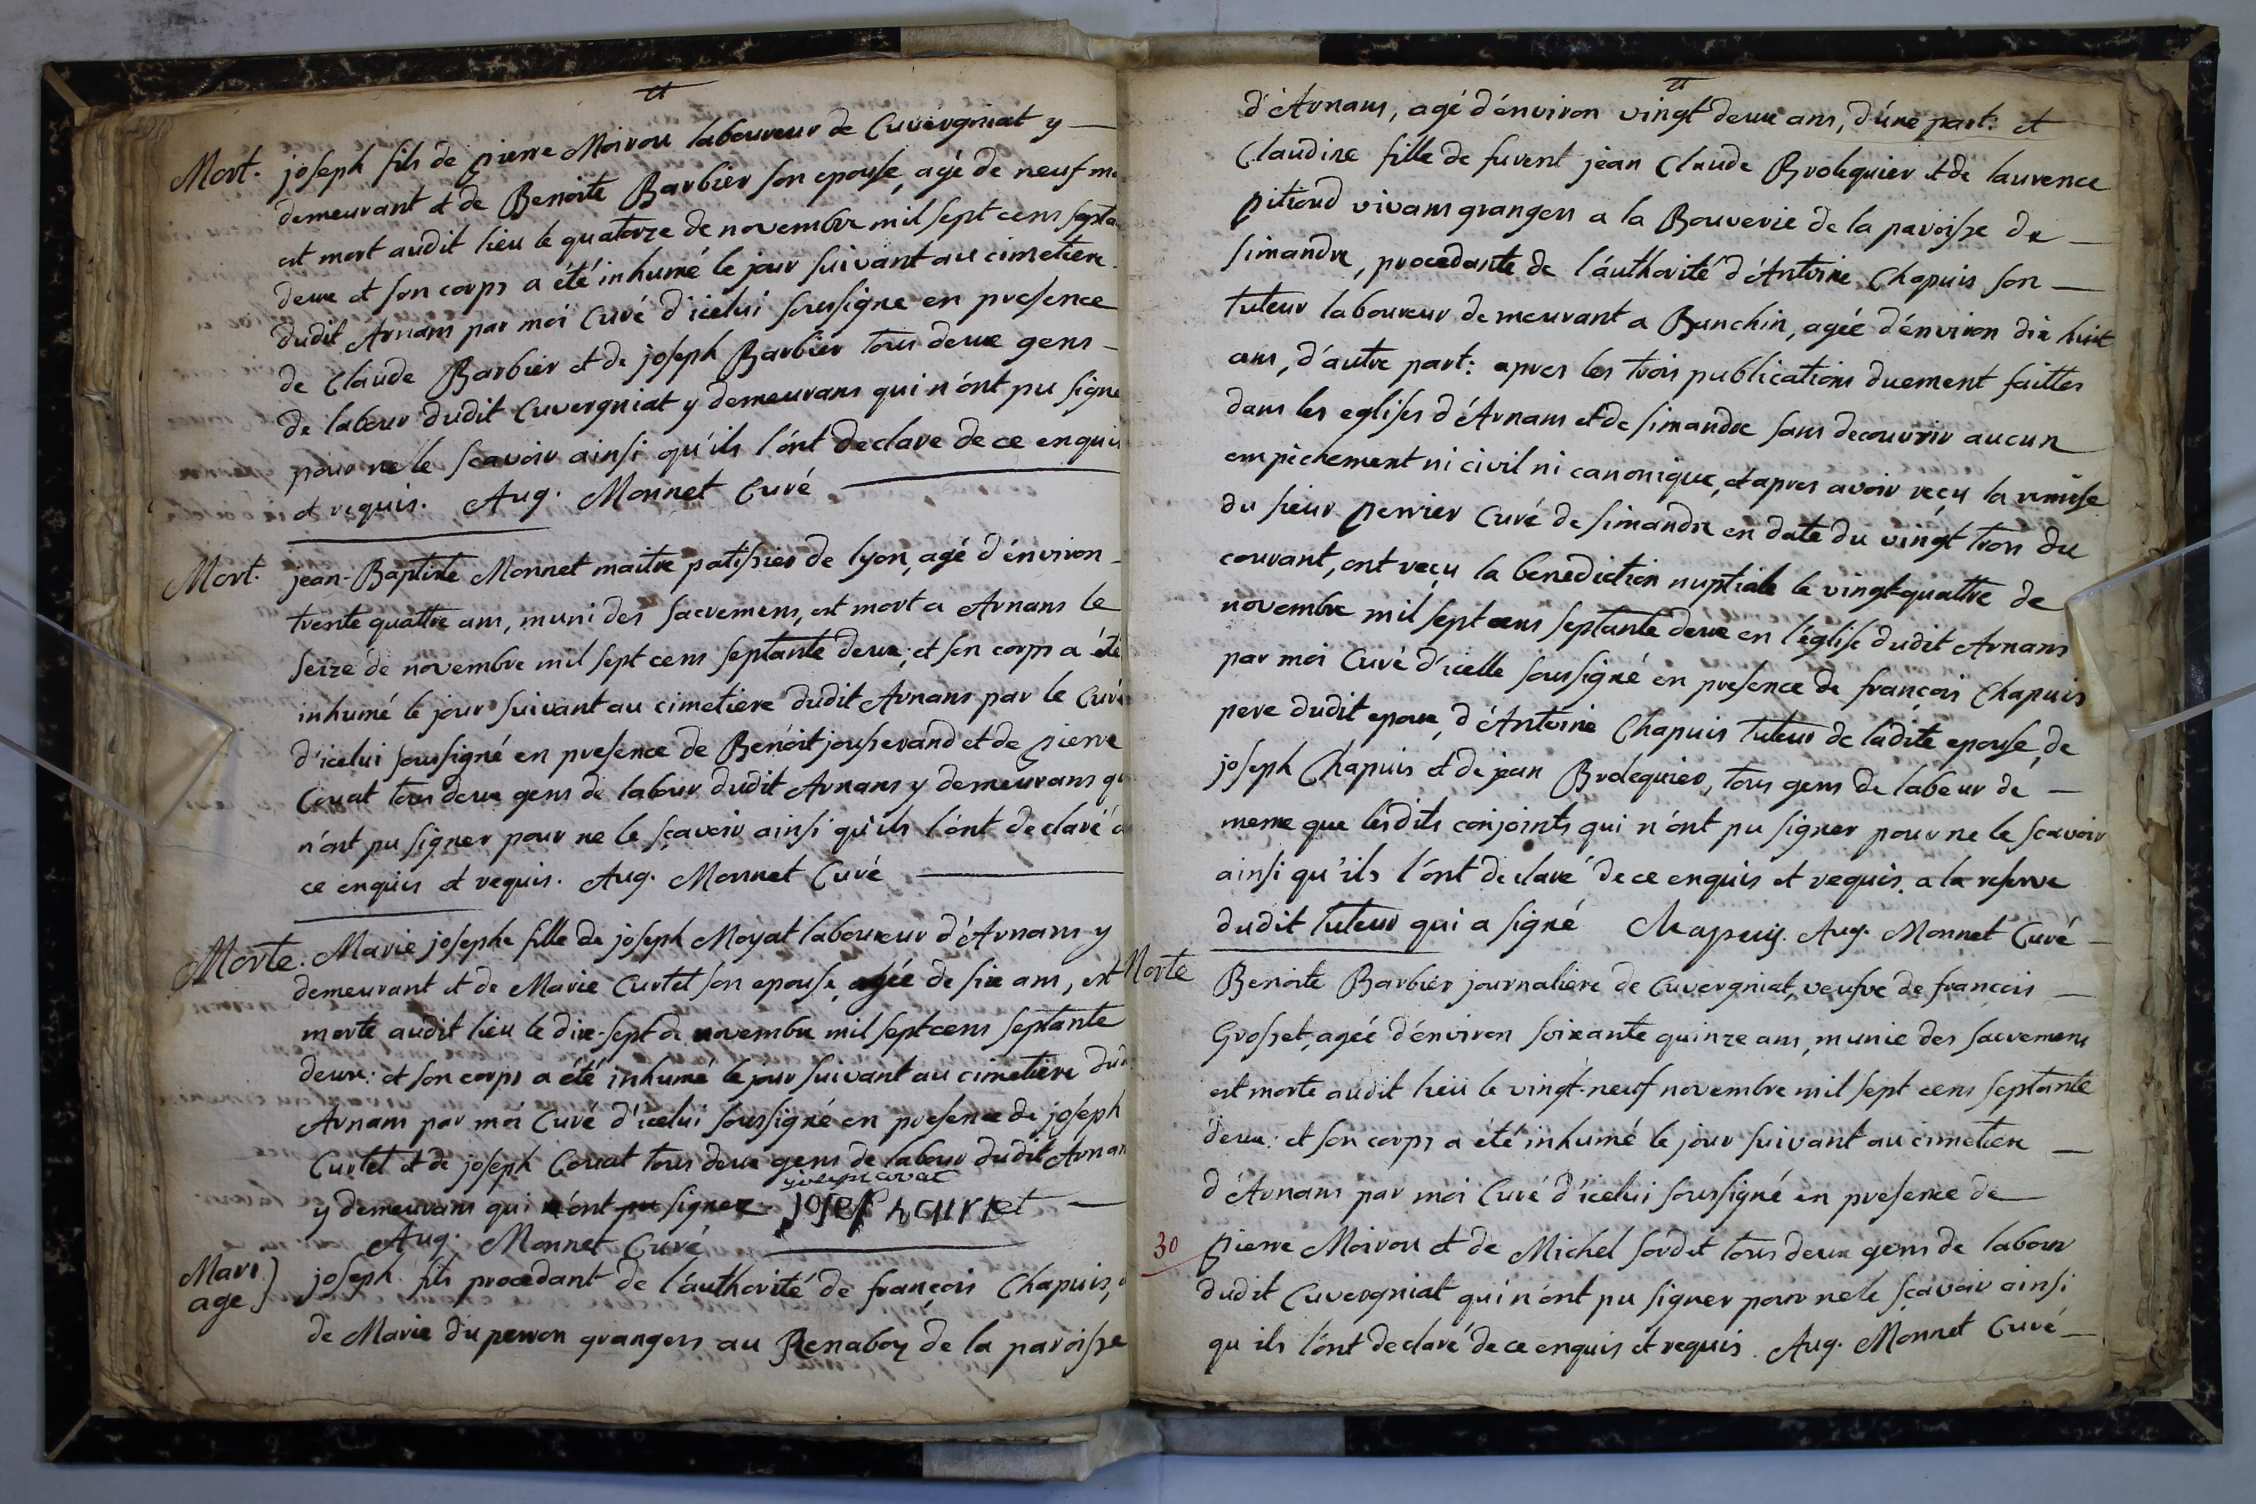 Mort. joseph fils de pierre Moirou laboureur de Cuvergniat y
demeurant et de Benoite Barbier son epouse, agé de neuf
est mort audit lieu le quatorze de novembre mil sept cens
deux et son corps a été inhumé le jour suivant au cimetiere
dudit Arnans par moi Curé d'icelui soussigne en presence
de Claude Barbier et de joseph Barbier tous deux gens
de labour dudit Cuvergniat y demeurans qui n'ont pu signe
pour ne le scavoir ainsi qu'ils l'ont declare de ce enquis
et requis. Aug. Monnet Curé
Mort. jean-Baptiste Monnet maitre patissier de lyon, agé d'environ
trente quattre ans, muni des sacremens, est mort a Arnans le
seize de novembre mil sept cens septante deux; et son corps a été
inhumé le jour suivant au cimetiere dudit Arnans par le Curé
d'icelui soussigné en presence de Benoit jousserand et de pierre
Couat tous deux gens de labour dudit Arnans y demeurans
n'ont pu signer pour ne le sçavoir ainsi qu'ils l'ont declaré
ce enquis et requis. Aug. Monnet Curé
Morte. Marie josephe fille de joseph Moyat laboureur d'Arnans y
demeurant et de Marie Curtet son epouse, agée de six ans, est
morte audit lieu le dix-sept de novembre mil sept cens septante
deux: et son corps a été inhumé le jour suivant au cimetiere
Arnans par moi Curé d'icelui soussigné en presence de joseph
Curtet et de joseph Couat tous deux gens de labour dudit Arnans
y demeurans qui n'ont pu signer joseph couat joseph curtet
Aug. Monnet Curé
Mari
age} joseph fils procedant de l'authorité de françois Chapuis,
de Marie duperron grangers au Renaboz de la paroisse
d'Arnans, agé d'environ vingt deux ans, d'une part: et
Claudine fille de furent jean Claude Brolequier et de laurence
pitiond vivans grangers a la Bouverie de la paroisse de
simandre, procedante de l'authorité d'Antoine Chapuis son
tuteur laboureur demeurant a Banchin, agée d'environ dix huit
ans, d'autre part: apres les trois publications duement faittes
dans les eglises d'Arnans et de simandre sans decouvrir aucun
empèchement ni civil ni canonique, et apres avoir reçu la remise
du sieur perrier Curé de simandre en date du vingt trois du
courant, ont reçu la benediction nuptiale le vingt-quattre de
novembre mil sept cens septante deux en l'église dudit Arnans
par moi Curé d'icelle soussigné en presence de françois Chapuis
pere dudit epoux, d'Antoine Chapuis tuteur de ladite epouse, de
joseph Chapuis et de jean Brolequier, tous gens de labeur de
meme que lesdits conjoints qui n'ont pu signer pour ne le scavoir
ainsi qu'ils l'ont declaré de ce enquis et requis. a la reserve
dudit tuteur qui a signé Chapuy. Aug. Monnet Curé
Morte Benoite Barbier journaliere de Cuvergniat, veufve de françois
Grosset, agée d'environ soixante quinze ans, munie des sacremens
est morte audit lieu le vingt-neuf novembre mil sept cens septante
deux: et son corps a été inhumé le jour suivant au cimetiere
d'Arnans par moi Curé d'icelui soussigné en presence de
30 pierre Moirou et de Michel sordet tous deux gens de labour
dudit Cuvergniat qui n'ont pu signer pour ne le sçavoir ainsi
qu ils l'ont declaré de ce enquis et requis. Aug. Monnet Curé